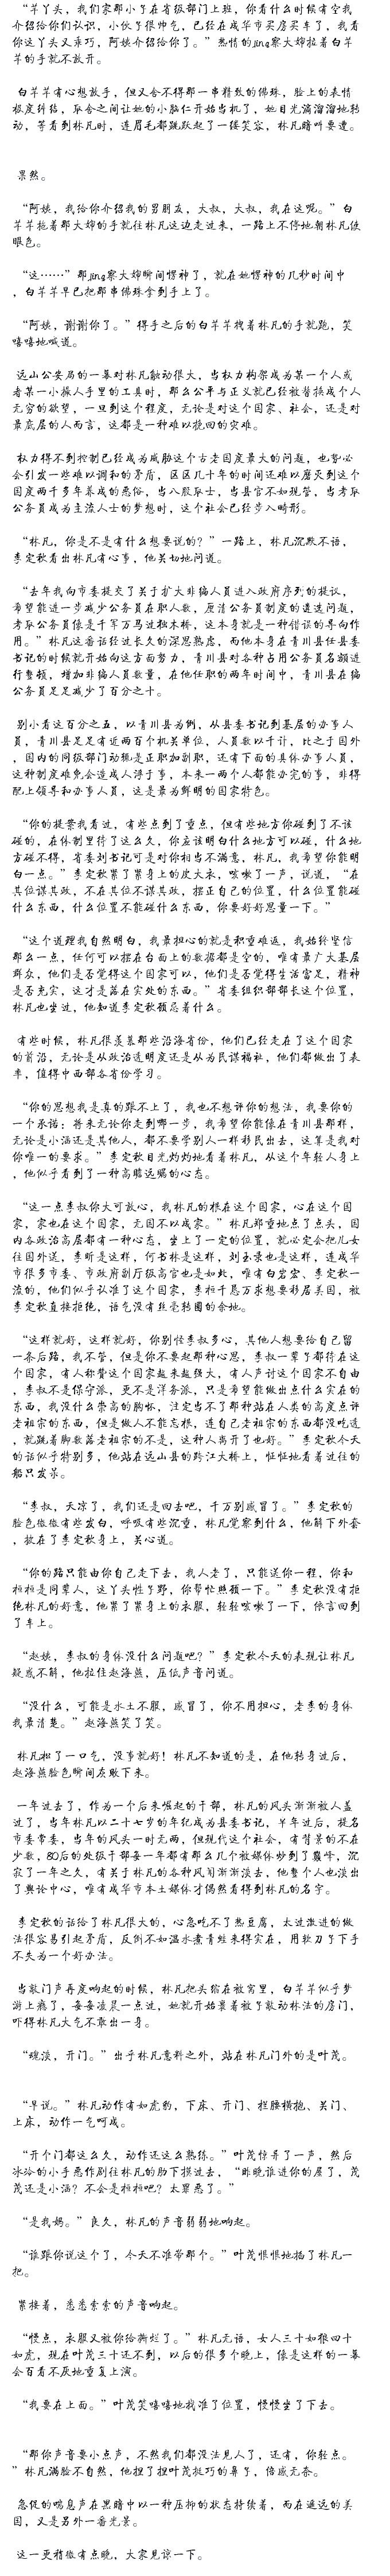 “芊丫头，我们家那小子在省级部门上班，你看什么时候有空我
介绍给你们认识，小伙子很帅气，已经在成华市买房买车了，我看
你这丫头又乖巧，阿姨介绍给你了。”热情的jing察大婶拉着白芊
芊的手就不放开。
白芊芊有心想放手，但又舍不得那一串精致的佛珠，脸上的表情
极度纠结，取舍之间让她的小脑仁开始当机了，她目光滴溜溜地转
动，等看到林凡时，连眉毛都跳跃起了一缕笑容，林凡暗呼要遭。
果然。
“阿姨，我给你介绍我的男朋友，大叔，大叔，我在这呢。”白
芊芊拖着那大婶的手就往林凡这边走过来，一路上不停地朝林凡使
眼色。
“这……”那jing察大婶瞬间愣神了，就在她愣神的几秒时间中
，白芊芊早已把那串佛珠拿到手上了。
“阿姨，谢谢你了。”得手之后的白芊芊拽着林凡的手就跑，笑
嘻嘻地喊道。
远山公安局的一幕对林凡触动很大，当权力构架成为某一个人或
者某一小撮人手里的工具时，那么公平与正义就已经被替换成个人
无穷的欲望，一旦到这个程度，无论是对这个国家、社会，还是对
最底层的人而言，这都是一种难以挽回的灾难。
权力得不到控制已经成为威胁这个古老国度最大的问题，也势必
会引发一些难以调和的矛盾，区区几十年的时间还难以磨灭到这个
国度两千多年养成的恶俗，当八股取士，当县官不如现管，当考取
公务员成为主流人士的梦想时，这个社会已经步入畸形。
“林凡，你是不是有什么想要说的？”一路上，林凡沉默不语，
李定秋看出林凡有心事，他关切地问道。
“去年我向市委提交了关于扩大非编人員进入政府序列的提议，
希望能进一步减少公务员在职人数，厘清公务員制度的遴选问题，
考取公务員像是千军万马过独木桥，这本身就是一种错误的导向作
用。”林凡这番话经过长久的深思熟虑，而他本身在青川县任县委
书记的时候就开始向这方面努力，青川县对各种占用公务員名额进
行整顿，增加非编人員数量，在他任职的两年时间中，青川县在编
公务員足足减少了百分之十。
别小看这百分之五，以青川县为例，从县委书记到基层的办事人
員，青川县足足有近两百个机关单位，人員数以千计，比之于国外
，国内的同级部门动辄是正职加副职，还有下面的具体办事人員，
这种制度难免会造成人浮于事，本来一两个人都能办完的事，非得
配上领导和办事人員，这是最为鲜明的国家特色。
“你的提案我看过，有些点到了重点，但有些地方你碰到了不该
碰的，在体制里待了这么久，你应该明白什么地方可以碰，什么地
方碰不得，省委刘书记可是对你相当不满意，林凡，我希望你能明
白一点。”李定秋紧了紧身上的皮大衣，咳嗽了一声，说道，“在
其位谋其政，不在其位不谋其政，摆正自己的位置，什么位置能碰
什么东西，什么位置不能碰什么东西，你要好好思量一下。”
“这个道理我自然明白，我最担心的就是积重难返，我始终坚信
那么一点，任何可以摆在台面上的数据都是空的，唯有最广大基层
群众，他们是否觉得这个国家可以，他们是否觉得生活富足，精神
是否充实，这才是落在实处的东西。”省委组织部部长这个位置，
林凡也坐过，他知道李定秋顾忌着什么。
有些时候，林凡很羡慕那些沿海省份，他们已经走在了这个国家
的前沿，无论是从政治透明度还是从为民谋福祉，他们都做出了表
率，值得中西部各省份学习。
“你的思想我是真的跟不上了，我也不想评你的想法，我要你的
一个承诺：将来无论你走到哪一步，我希望你能像在青川县那样，
无论是小涵还是其他人，都不要学别人一样移民出去，这算是我对
你唯一的要求。”李定秋目光灼灼地看着林凡，从这个年轻人身上
，他似乎看到了一种高瞻远瞩的心态。
“这一点李叔你大可放心，我林凡的根在这个国家，心在这个国
家，家也在这个国家，无国不以成家。”林凡郑重地点了点头，国
内各政治高层都有一种心态，坐上了一定的位置，就必定会把儿女
往国外送，李昕是这样，何书林是这样，刘玉录也是这样，连成华
市很多市委、市政府副厅级高官也是如此，唯有白岩宏、李定秋一
流的，他们似乎认准了这个国家，李桓千恳万求想要移居美国，被
李定秋直接拒绝，语气没有丝毫转圜的余地。
“这样就好，这样就好，你别怪李叔多心，其他人想要给自己留
一条后路，我不管，但是你不要起那种心思，李叔一辈子都待在这
个国家，有人称赞这个国家越来越强大，有人声讨这个国家不自由
，李叔不是保守派，更不是洋务派，只是希望能做出点什么实在的
东西，我没什么崇高的胸怀，注定当不了那种站在人类的高度点评
老祖宗的东西，但是做人不能忘根，连自己老祖宗的东西都没吃透
，就跳着脚数落老祖宗的不是，这种人离开了也好。”李定秋今天
的话似乎特别多，他站在远山县的跨江大桥上，怔怔地看着过往的
船只发呆。
“李叔，天凉了，我们还是回去吧，千万别感冒了。”李定秋的
脸色微微有些发白，呼吸有些沉重，林凡觉察到什么，他解下外套
，披在了李定秋身上，关心道。
“你的路只能由你自己走下去，我人老了，只能送你一程，你和
桓桓是同辈人，这丫头性子野，你帮忙照顾一下。”李定秋没有拒
绝林凡的好意，他紧了紧身上的衣服，轻轻咳嗽了一下，依言回到
了车上。
“赵姨，李叔的身体没什么问题吧？”李定秋今天的表现让林凡
疑惑不解，他拉住赵海燕，压低声音问道。
“没什么，可能是水土不服，感冒了，你不用担心，老李的身体
我最清楚。”赵海燕笑了笑。
林凡松了一口气，没事就好！林凡不知道的是，在他转身过后，
赵海燕脸色瞬间灰败下来。
一年过去了，作为一个后来崛起的干部，林凡的风头渐渐被人盖
过了，当年林凡以二十七岁的年纪成为县委书记，半年过后，提名
市委常委，当年的风头一时无两，但现代这个社会，有背景的不在
少数，80后的处级干部每一年都有那么几个被媒体炒到了巅峰，沉
寂了一年之久，有关于林凡的各种风闻渐渐淡去，他整个人也淡出
了舆论中心，唯有成华市本土媒体才偶然看得到林凡的名字。
李定秋的话给了林凡很大的，心急吃不了热豆腐，太过激进的做
法很容易引起矛盾，反倒不如温水煮青蛙来得实在，用软刀子下手
不失为一个好办法。
当敲门声再度响起的时候，林凡把头给在被窝里，白芊芊似乎梦
游上瘾了，每每凌晨一点过，她就开始裹着被子敲动林凡的房门，
吓得林凡大气不敢出一身。
“魂淡，开门。”出乎林凡意料之外，站在林凡门外的是叶茂。
“早说。”林凡动作有如虎豹，下床、开门、拦腰横抱、关门、
上床，动作一气呵成。
“开个门都这么久，动作还这么熟练。”叶茂惊异了一声，然后
冰冷的小手恶作剧往林凡的肋下摸过去，“昨晚谁进你的屋了，茂
茂还是小涵？不会是桓桓吧？太罪恶了。”
“是我妈。”良久，林凡的声音弱弱地响起。
“谁跟你说这个了，今天不准带那个。”叶茂恨恨地掐了林凡一
把。
紧接着，悉悉索索的声音响起。
“慢点，衣服又被你给撕烂了。”林凡无语，女人三十如狼四十
如虎，现在叶茂三十还不到，以后的很多个晚上，像是这样的一幕
会百看不厌地重复上演。
“我要在上面。”叶茂笑嘻嘻地找准了位置，慢慢坐了下去。
“那你声音要小点声，不然我们都没法见人了，还有，你轻点。
”林凡满脸不自然，他捏了捏叶茂挺巧的鼻子，倍感无奈。
急促的喘息声在黑暗中以一种压抑的状态持续着，而在遥远的美
国，又是另外一番光景。
这一更稍微有点晚，大家见谅一下。